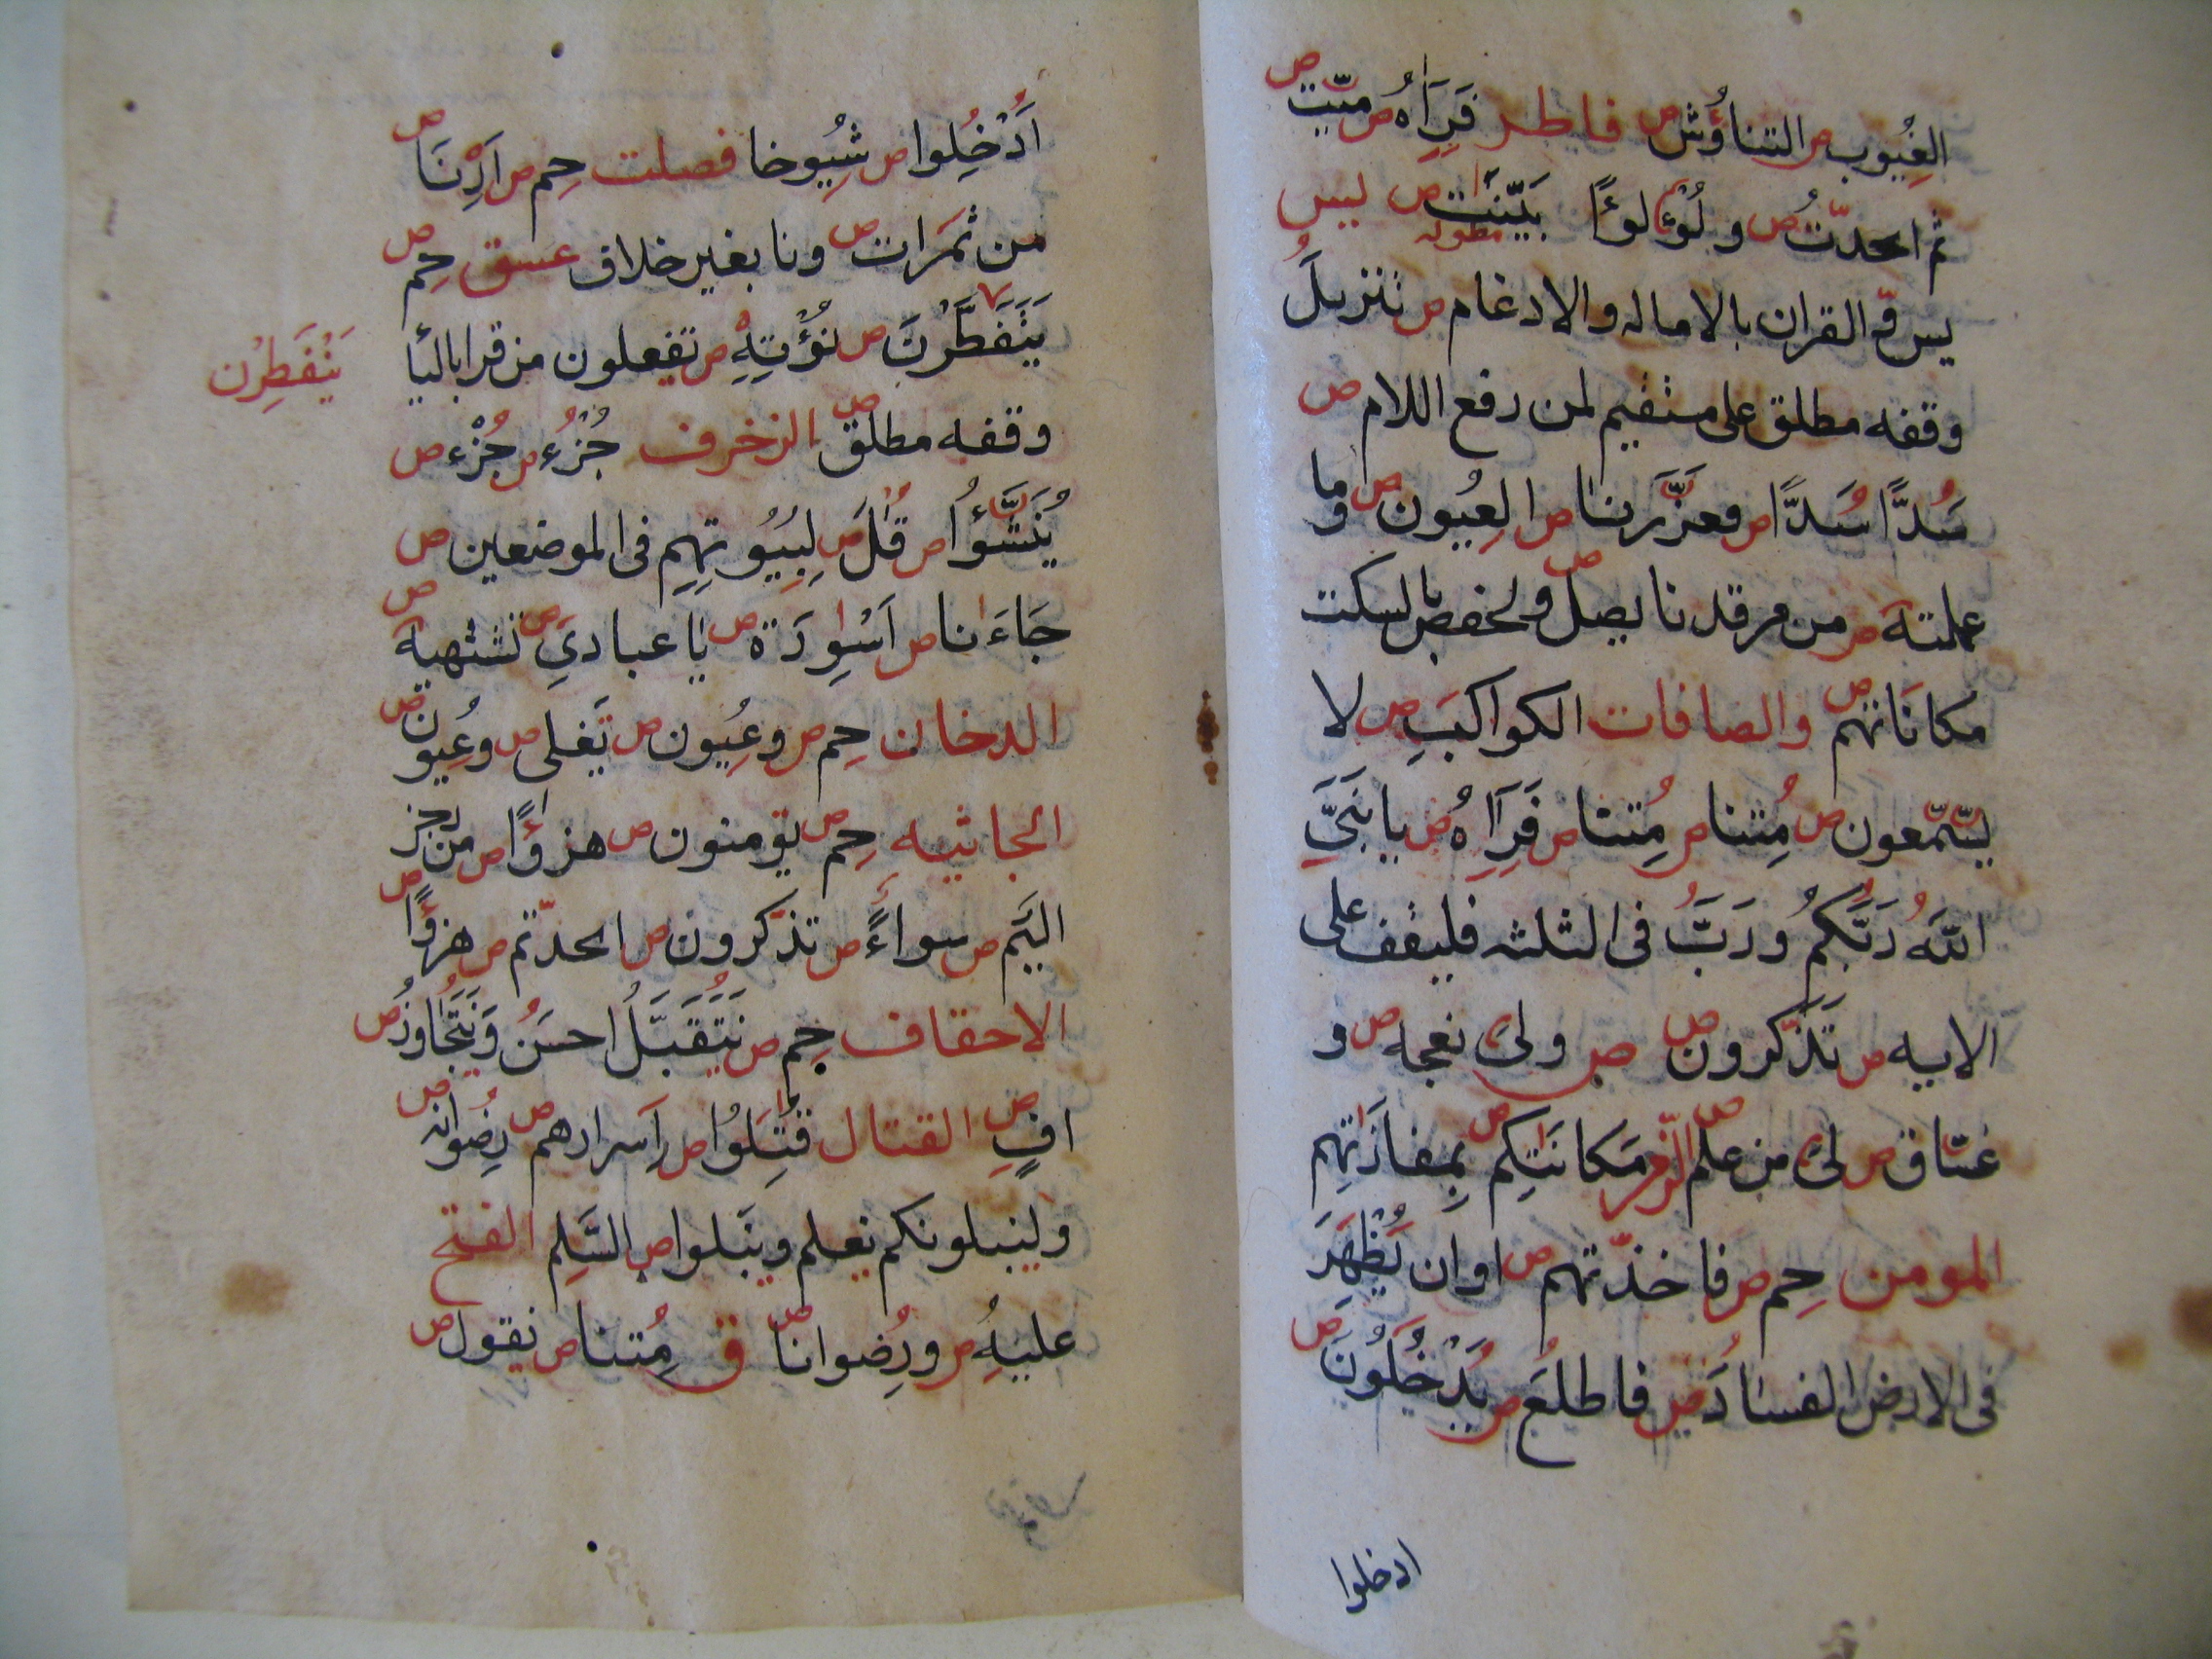 الغِيُوب ص التناؤُش ص فاطر فَرَآهُ ص ميّت ص
ثم اخذتُ ص ولُؤلوءًا بَيّنَت مطوله ص ليس
يس وَالقران بالاماله والادغام ص تنزيلَُ
وقفه مطلق على مستقيم لمن رفع اللام ص
سُدًّا سُدًّا ص فعزّزنا ص العِيُون ص وما
عملته ص من مرقدنا يصل ولحفص بالسكت
مكاناتهم ص والصافات الكواكبَِ ص لا
يسّمّعون ص مُِتنا ص مُِتنا ص فَرَآهُ ص يا بنَيَِّ
اللهَُ رَبَّكمُ ورَبَُّ فى الثلثه فليقف على
الايه ص تذَّكرون ص ص ولىَ نعجه ص و
غسّاق ص لىَ من علم ص الزمر مكانَاتِكم ص بِمفازَاتِهم
المومن حِم ص فاخذتهم ص او ان يُظْهِرَ
فى الارض الفسادَُ ص فاطلعَُ ص يُدْخَلُونَ ص
ادخلوا
اَُدْخُِلوا ص شُِيوخا فصلت حِم ص اَرِْنَا ص
من ثمَرات ص ونا بغير خلاف عسق حِم ص
يَتَفَطَّرْنَ ص نُؤْتِهِْ ص تفعلون من قرا باليا
يَنْفَطِرْن
وقفه مطلق ص الزخرف جُزُْء ص جُزُْء ص
يُنَشَّؤُا ص قُلَ ص لِبُِيُوتِهِم فى الموضعين ص
جَاءَانا ص اَسْاوِرَة ص يا عبادىَِ ص تشتهيه ص
الدخان حِم ص وعُِيون ص تَغلى ص وعُِيون ص
الجاثيه حِم ص يومنون ص هزؤًا ص من رجز
اليَم ص سواءًٌ ص تذّكرون ص اتخذتم ص هزؤًا ص
الاحقاف حِم ص نَتَقَبَّلُ احسَنُ وَنَتَجَاوَزُ ص
افٍِ ص القتال قُتِلُوا ص اَِسرارهم ص رِضُوانه ص
ولنبلونكم نعلم ونبلوا ص السَّلِم الفتح
عليهُِ ص ورُِضوانا ص ق مُِتنا ص نقول ص